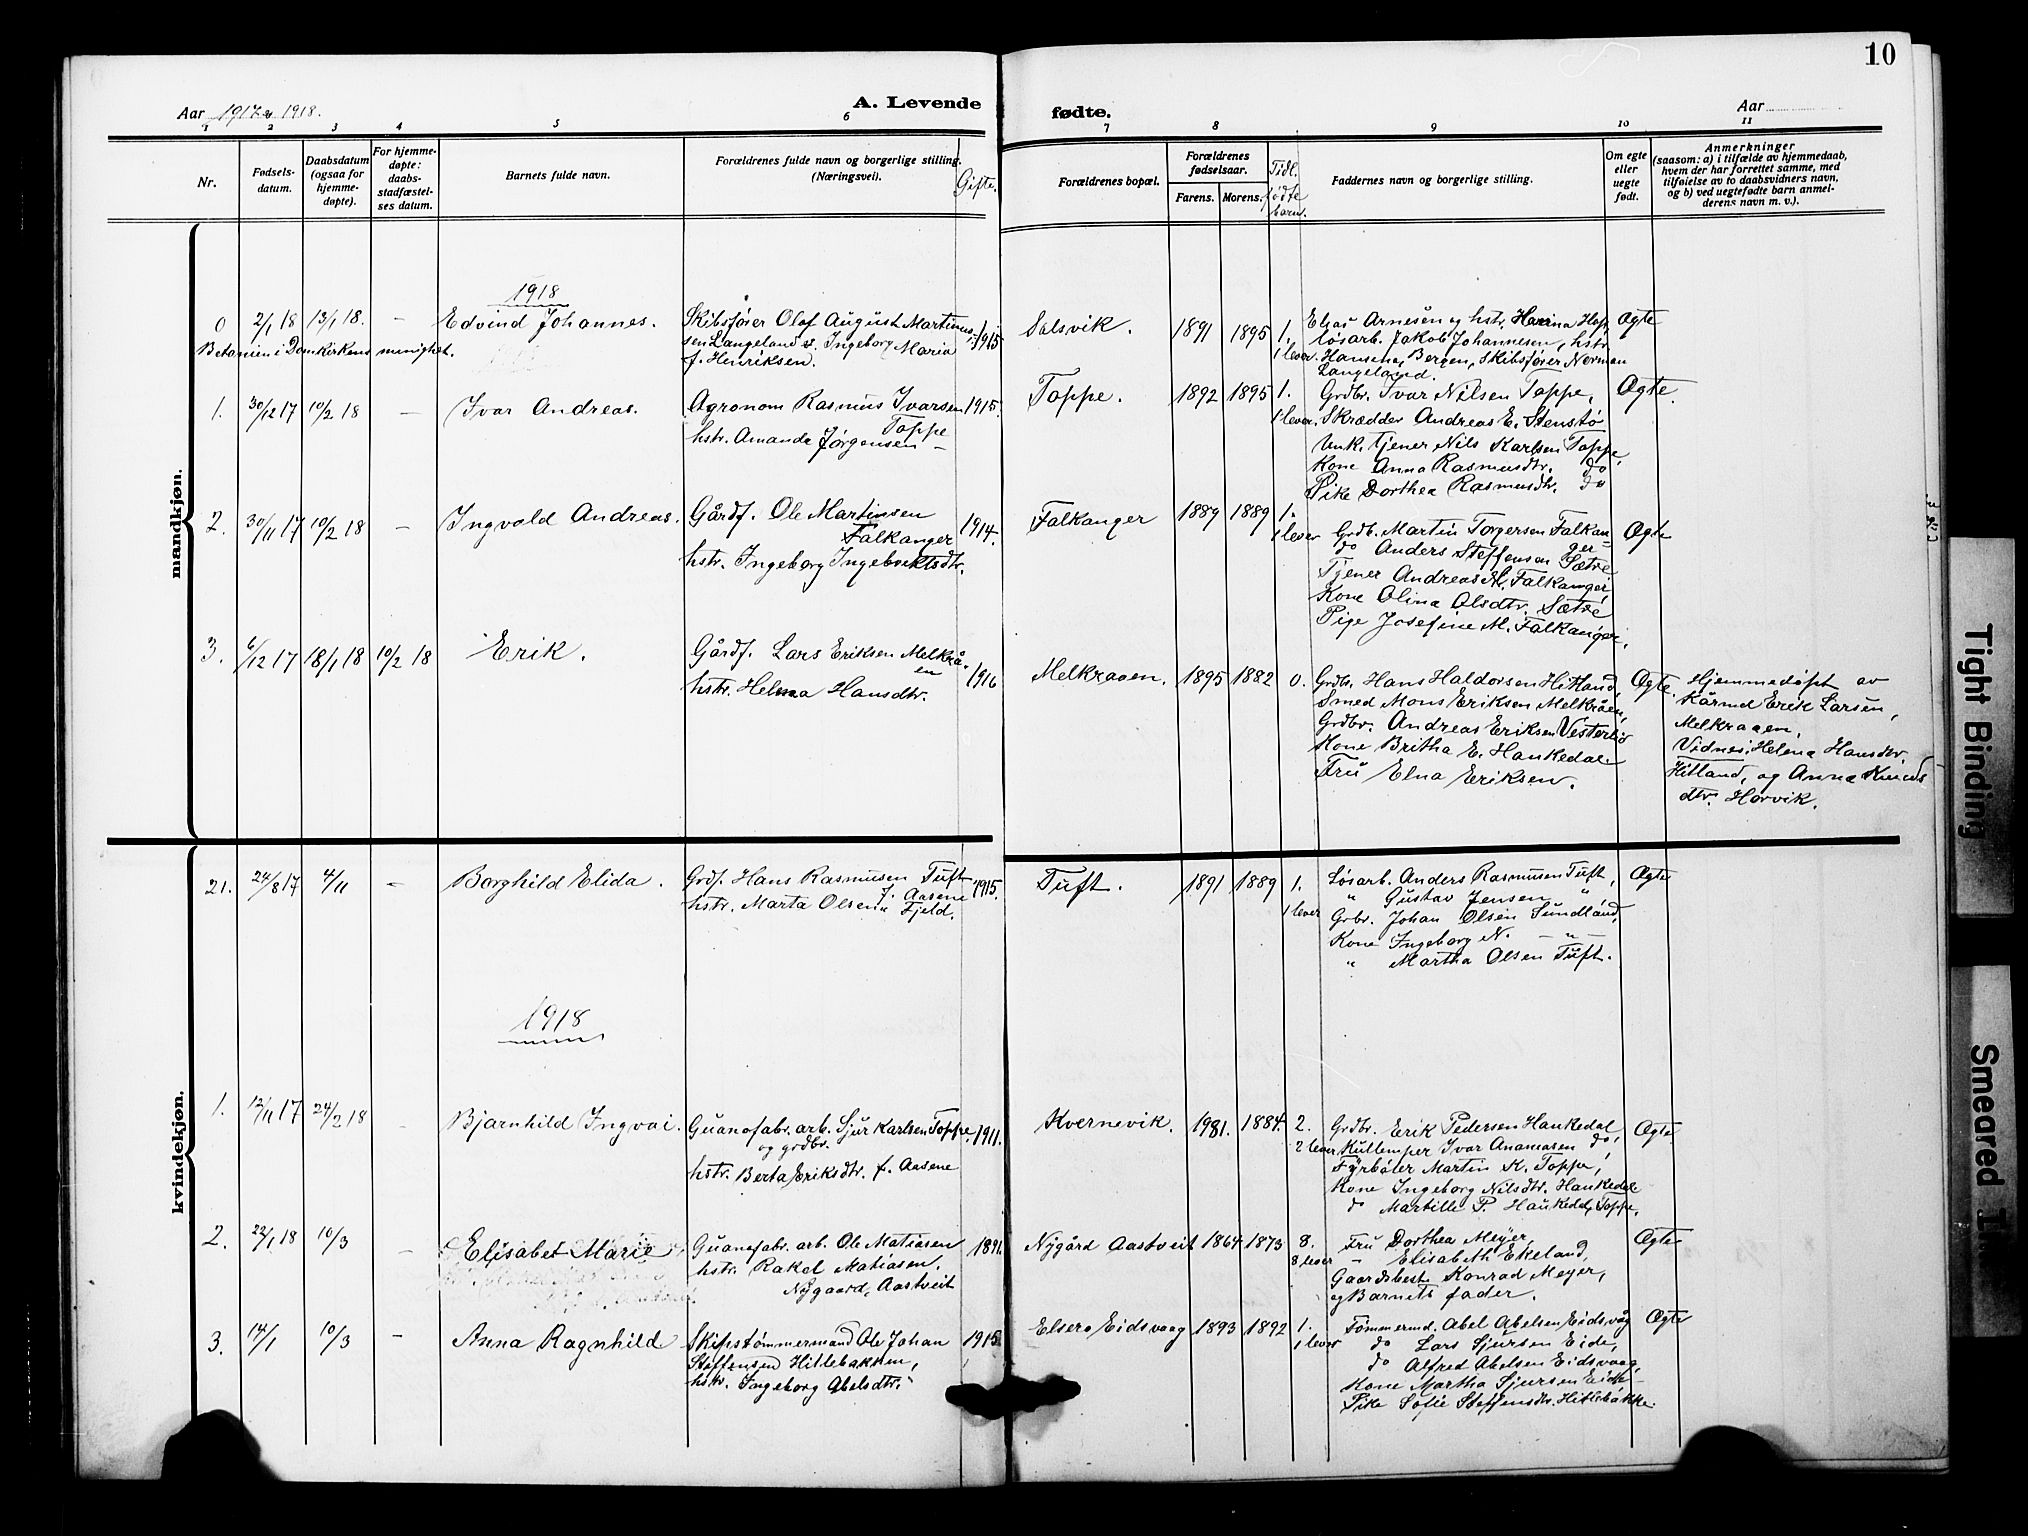 10
Aar 1917 & 1918.
A. Levende
fødte.
Aar
1 2 3 4 5 6 7 8 9 10 11
Nr.
Fødsels-
datum.
Daabsdatum
(ogsaa for
hjemme-
døpte).
For hjemme-
døpte:
daabs-
stadfæstel-
ses datum.
Barnets fulde navn.
Forældrenes fulde navn og borgerlige stilling.
(Næringsvei).
Gifte.
Forældrenes bopæl.
Forældrenes
fødselsaar.
Farens. Morens.
Tidl.
fødte
barn.
Faddernes navn og borgerlige stilling.
Om egte
eller
uegte
født.
Anmerkninger
(saasom: a) i tilfælde av hjemmedaab,
hvem der har forrettet samme, med
tilføielse av to daabsvidners navn,
og b) ved uegtefødte barn anmel-
derens navn m. v.).
mandkjøn.
1918
0 2/1 18 13/1 18. – Edvind Johannes.
Betanien i Domkirkens menighet.
Skibsfører Olaf August Martinus-
sen Langeland &. Ingeborg Maria
f. Henriksen.
1915
Salsvik. 1891 1895 1.
1 lever.
Elias Arnesen og hstr. Hop,
løsarb. Jakob Johannesen, hstr.
Hansena, Bergen, Skibsfører Norman
Langeland.
Ægte
1. 30/12 17 10/2 18 – Ivar Andreas.
Agronom Rasmus Ivarsen
Toppe
hstr. Amanda Jørgensen –
1915.
Toppe. 1892 1895 1.
1 lever.
Grdbr. Ivar Nilsen Toppe,
Skrædder Andreas E. Stenstø
Unk. tjener Nils Karlsen Toppe,
Kone Anna Rasmusdtr. do
Pike Dorthea Rasmusdtr. do
Ægte.
2. 30/11 17 10/2 18 – Ingvald Andreas.
Gårdf. Ole Martinsen
Falkanger
hstr. Ingeborg Ingebrektsdtr.
1914.
Falkanger 1889 1889 1.
1 lever
Grdb. Martin Torgersen Falkan-
ger
do Anders Steffensen Sætre
Tjener Andreas M. Falkanger
Kone Olina Olsdtr. Sætre
Pige Josefine M. Falkanger.
Ægte
3. 6/12 17 18/1 18 10/2 18 Erik.
Gårdf. Lars Eriksen Melkrå-
en
hstr. Helena Hansdtr.
1916
Melkraaen. 1895 1882 0.
Grdbr. Hans Haldorsen Hitland,
Smed Mons Eriksen Melkråen,
Grdbr. Andreas Eriksen Vesterbø
Kone Britha E. Haukedal.
Fru Elna Eriksen.
Ægte.
Hjemmedøpt av
Kårmd Erik Larsen,
Melkraaen.
Vidner: Helena Hansdtr.
Hitland, og Anna Knuds
dtr. Horvik.
kvindekjøn.
21. 24/8 17 4/11 – Borghild Elida.
Grdf. Hans Rasmusen Tuft
hstr. Marta Olsen f. Aasene
" Fjeld.
1915.
Tuft. 1891 1889 1.
1 lever
Løsarb. Anders Rasmusen Tuft,
" Gustav Jensen "
Grbr. Johan Olsen Sundland,
Kone Ingeborg N. – " –
" Martha Olsen Tuft.
Ægte
1918
1. 12/11 17 24/2 18 Bjarnhild Ingvai.
Guanofabr. arb. Sjur Karlsen Toppe
og grdbr.
hstr. Berta Eriksdtr. f. Aasene
1911.
Kvernevik. 1981. 1884. 2.
2 lever
Grdbr. Erik Pedersen Haukedal
Kullemper Ivar Ananiasen do,
Fyrbøter Martin K. Toppe,
Kone Ingeborg Nilsdtr. Haukedal
do Martille P. Haukedal, Toppe.
Ægte
2. 22/1 18 10/3 – Elisabet Marie
Guanofabr. arb. Ole Matiasen
hstr. Rakel Matiasen,
Nygaard, Aastveit
1891.
Nygård Aastveit 1864 1873 8.
8 lever
Fru Dorthea Meyer,
" Elisabeth Ekeland,
Gaardsbest. Konrad Meyer,
og Barnets fader.
Ægte
3. 14/1 10/3 – Anna Ragnhild
Skipstømmermand Ole Johan
Steffensen Hitlebakken,
hstr. Ingeborg Abelsdtr.
1915
Elsero Eidsvaag 1893 1892 1.
1 lever
Tømmermd. Abel Abelsen Eidsvåg
do Lars Sjursen Eide,
do Alfred Abelsen Eidsvaag,
Kone Martha Sjursen Eide
Pike Sofie Steffensdtr. Hitlebakke.
Ægte
Tight Binding
Smeared